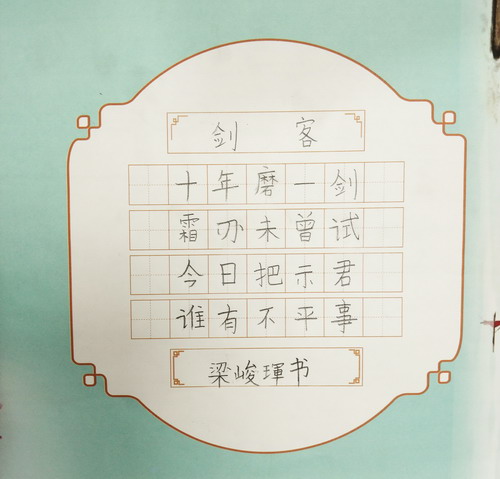 剑客
十年磨一剑
霜刃未曾试
今日把示君
谁有不平事
梁峻琿书